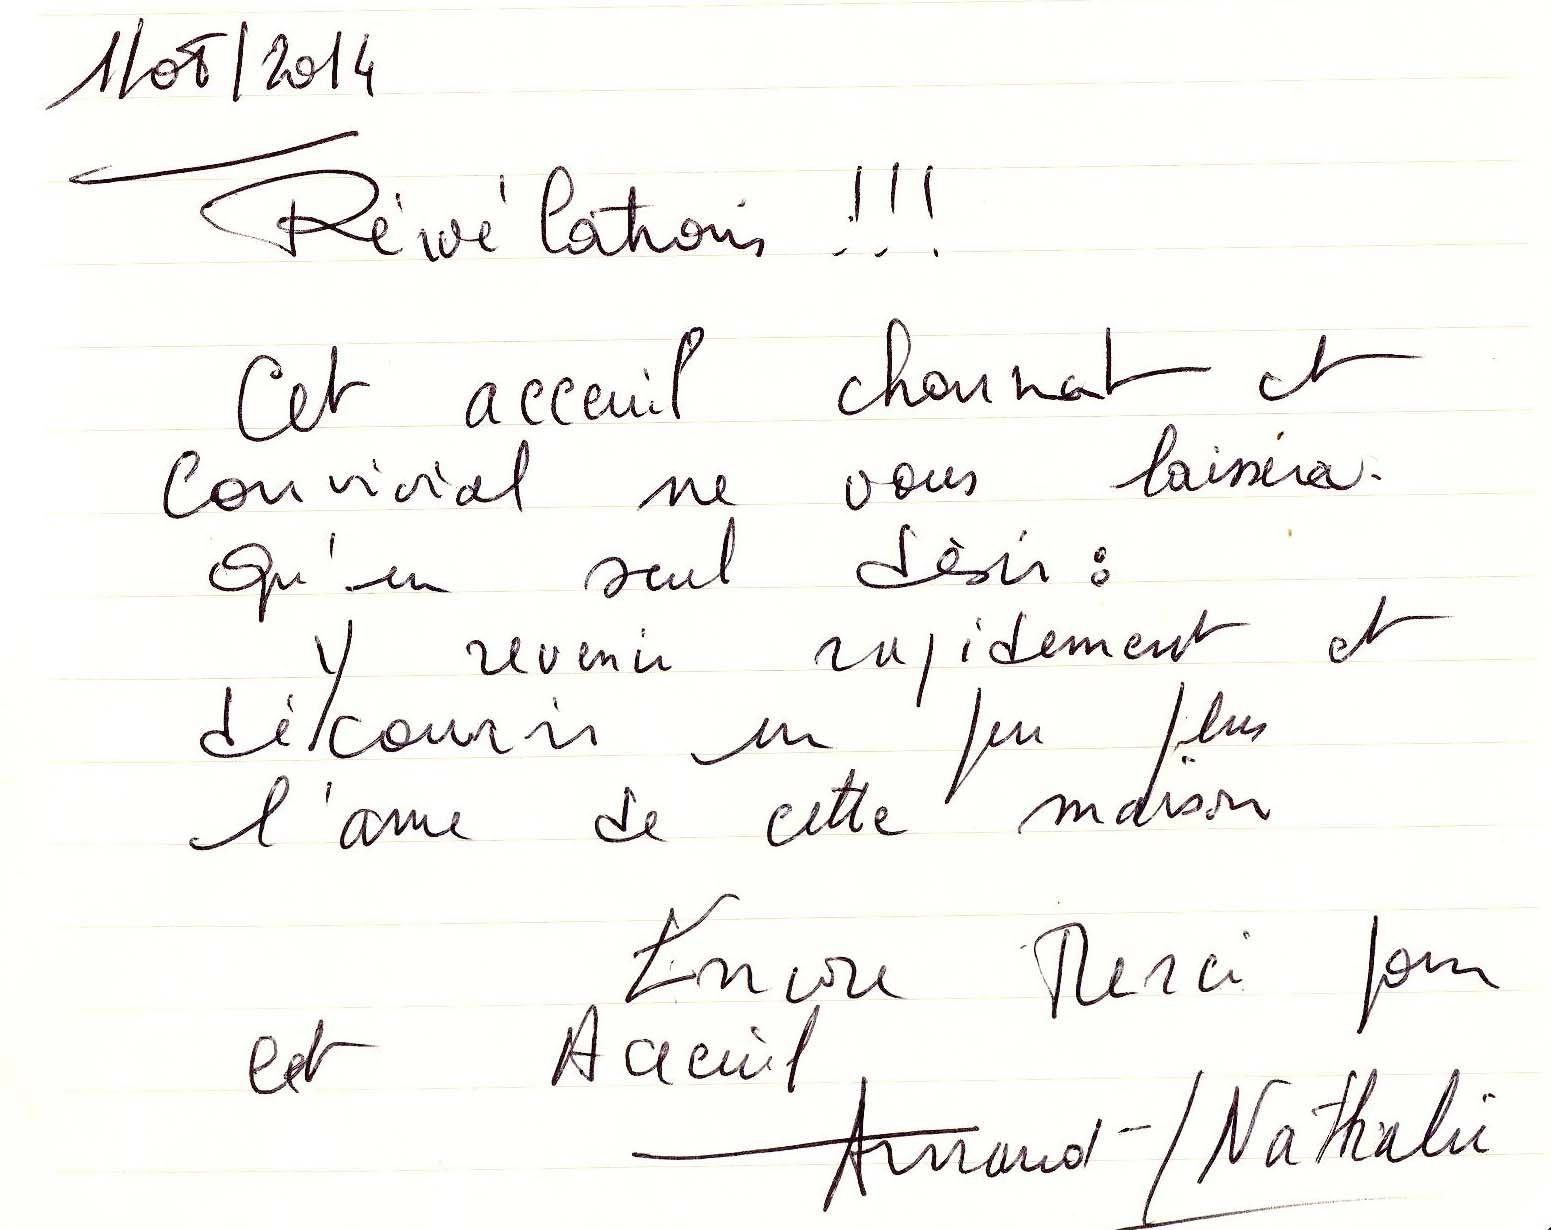 11/08/2014
Révélations !!!
Cet acceuil charmant et
convivial ne vous laissera
qu'un seul désir :
y revenir rapidement et
découvrir un peu plus
l'ame de cette maison
Encore Merci pour
cet Acceuil
Arnaud - / Nathalie